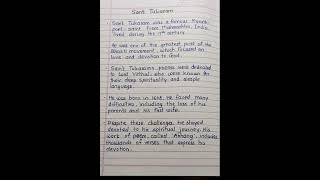 Sant Tukaram
Sant Tukaram was a famous Marathi
poet saint from Maharashtra, India,
lived during the 17th century.
He was one of the greatest poet of the
Bhakti movement, which focused on
love and devotion to God.
Sant Tukaram's poems were dedicated
to Lord Vitthal who were known for
their deep spirituality and simple
language.
He was born in 1608. He faced many
difficulties, including the loss of his
parents and his first wife.
Despite these challenges, he stayed
devoted to his spiritual journey. His
work of poem, called 'Abhang', includes
thousands of verses that express his
devotion.